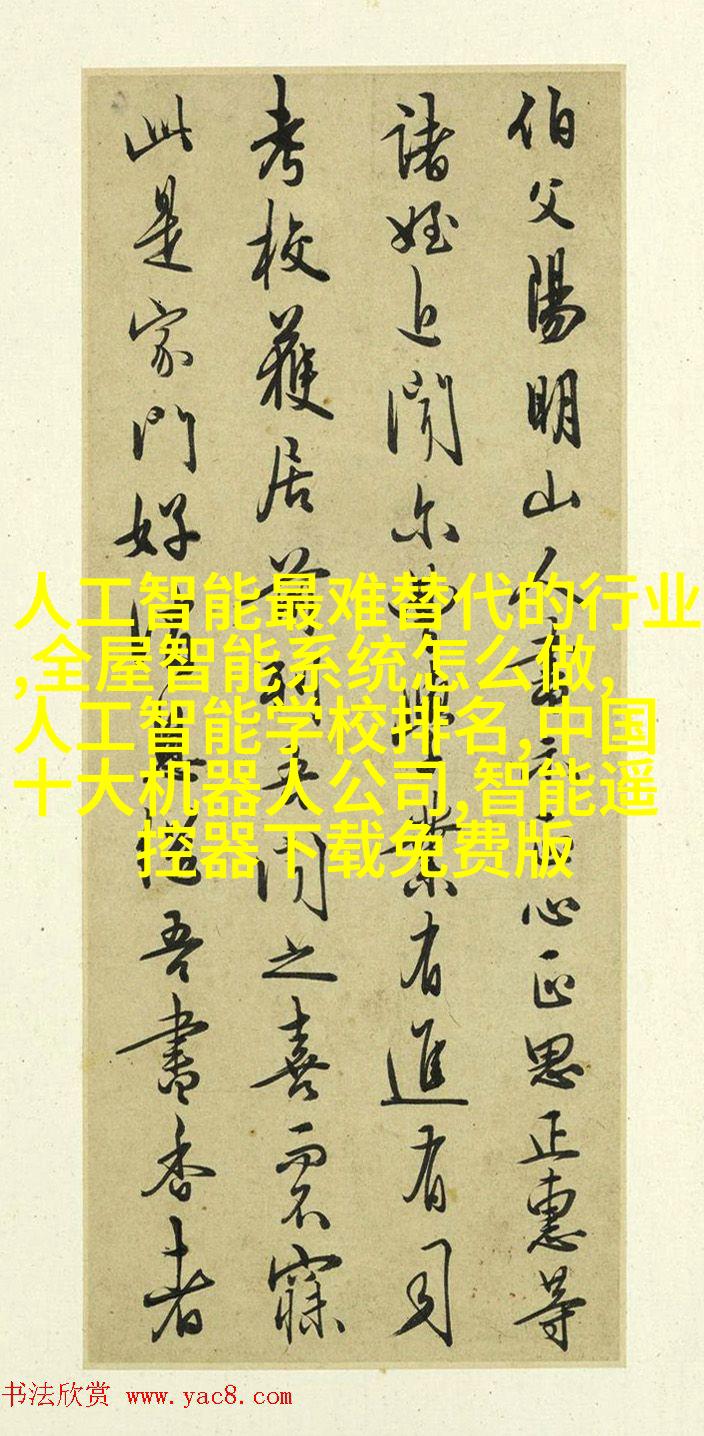 伯父陽明山人書示正心正思正惠等
諸姪近聞尔曹學業有進有司
考校獲居前列吾聞之喜而不寐
此是家門好消息繼吾書香者
人工智能最难替代的行业
,全屋智能系统怎么做,
人工智能学校排名,中国
十大机器人公司,智能遥
控器下载免费版
书法欣赏 www.yac8.com